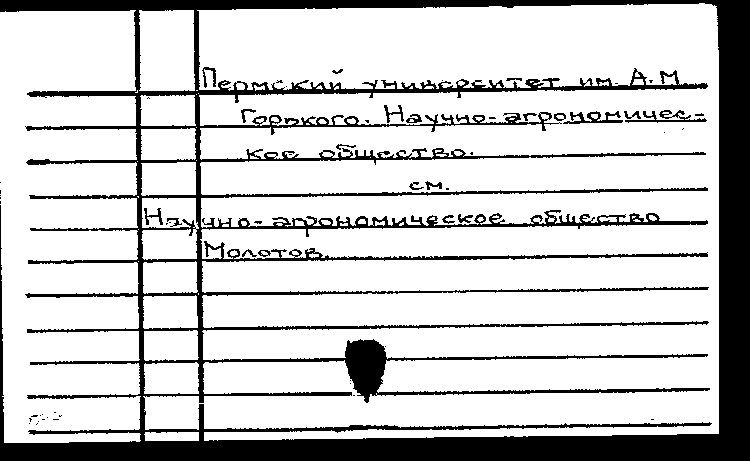 Пермский университет им. А.М.
Горького. Научно-агрономичес-
кое общество.
см.
Научно-агрономическое общество
Молотов.